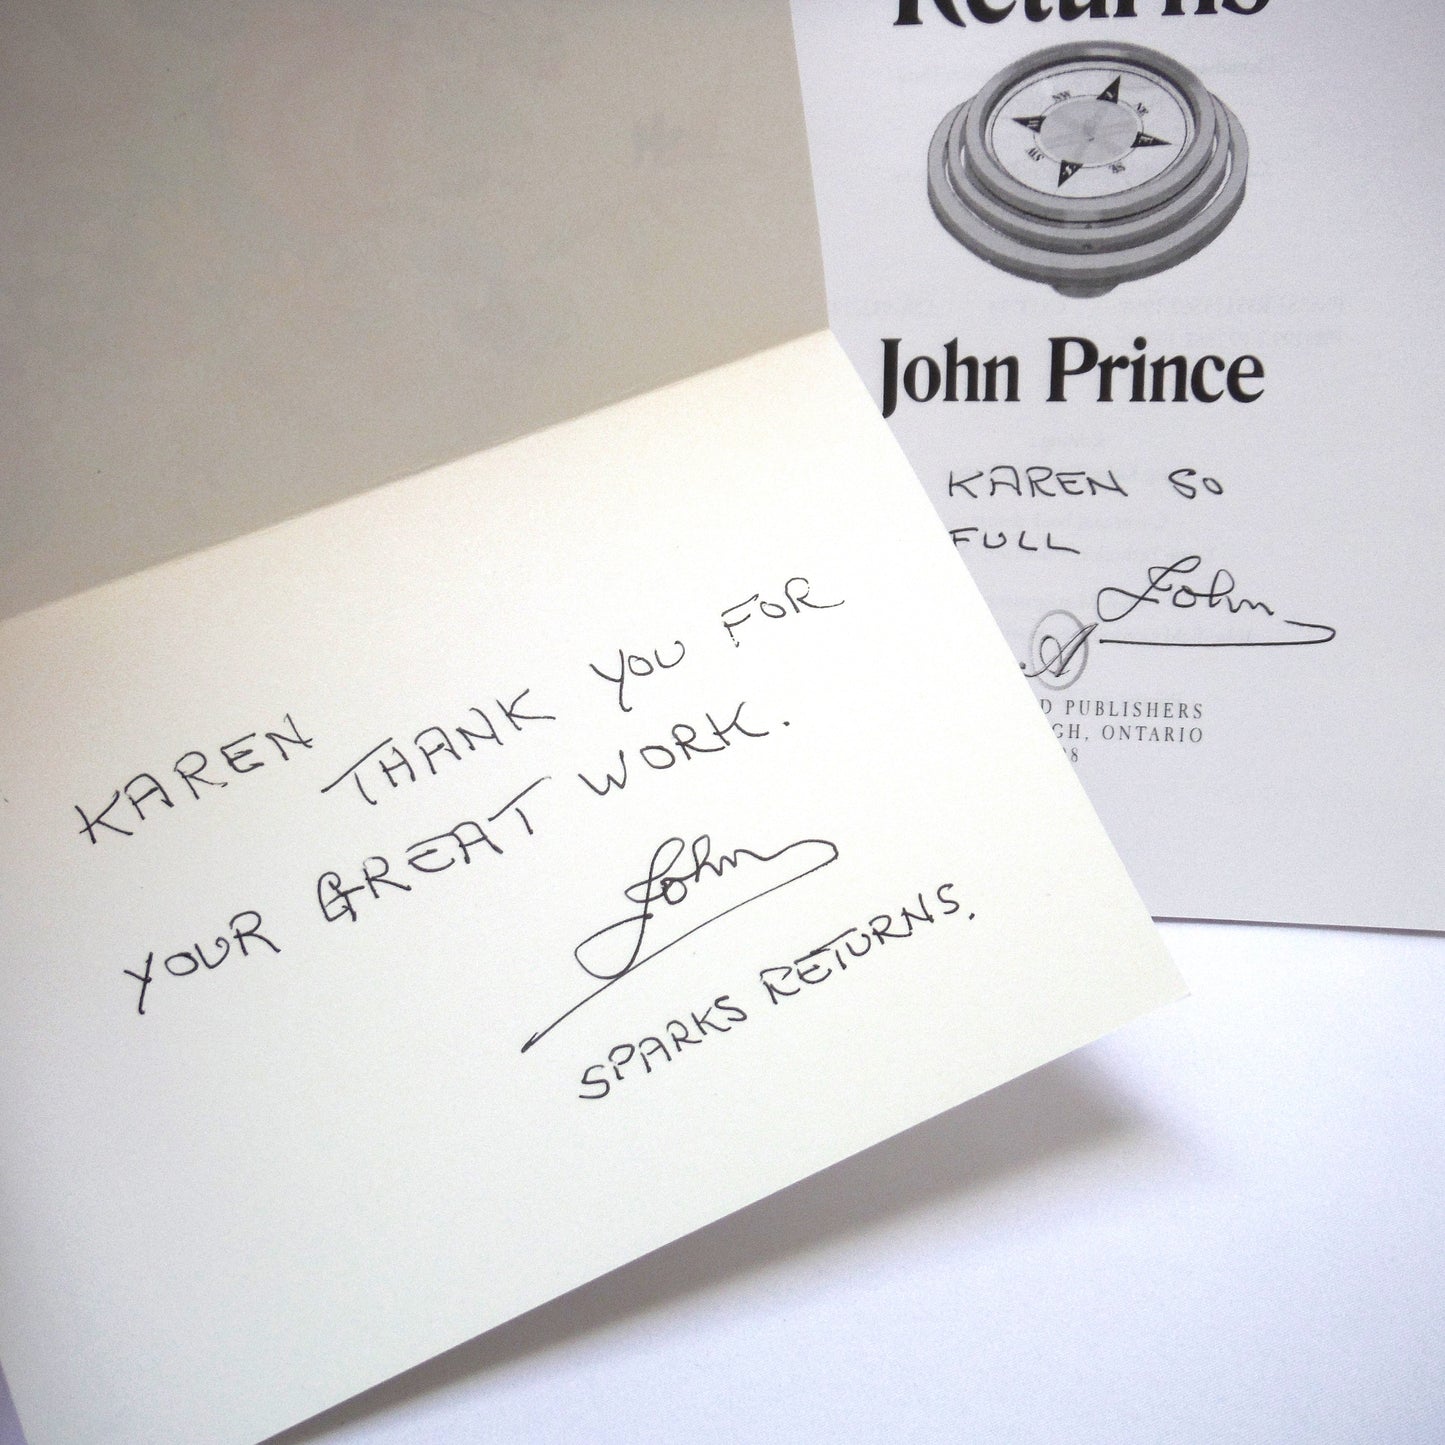 KAREN THANK YOU FOR
YOUR GREAT WORK.
John
SPARKS RETURNS.
Returns
John Prince
KAREN SO
FULL
John
A
D PUBLISHERS
GH, ONTARIO
8